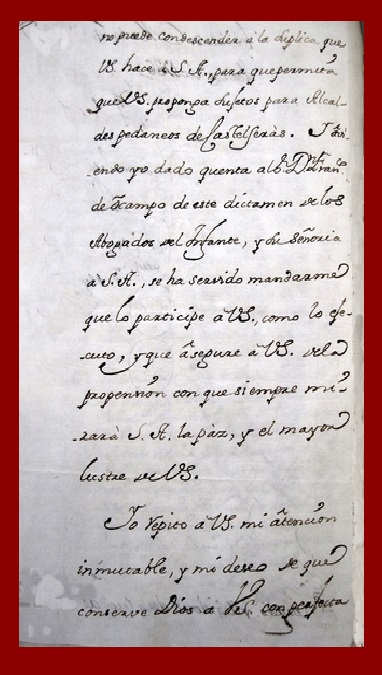 no puede condescender à la suplica que
VS. hace à S. A., para que permita
que VS. proponga sugetos para Alcal-
des pedaneos de Castelserás. I havi-
endo yo dado quenta al Sr. Dn. Fran.co
de Ocampo de este dictamen de los
Abogados del Infante, y su Señoria
à S. A., se ha servido mandarme
que lo participe à VS., como lo efe-
cuto, y que asegure à VS. de la
propension con que siempre mi-
rarà S. A. la pàz, y el mayor
lustre de VS.
Yo repito à VS. mi atencion
inmutable, y mi deseo de que
conserve Dios a VS. con perfecta